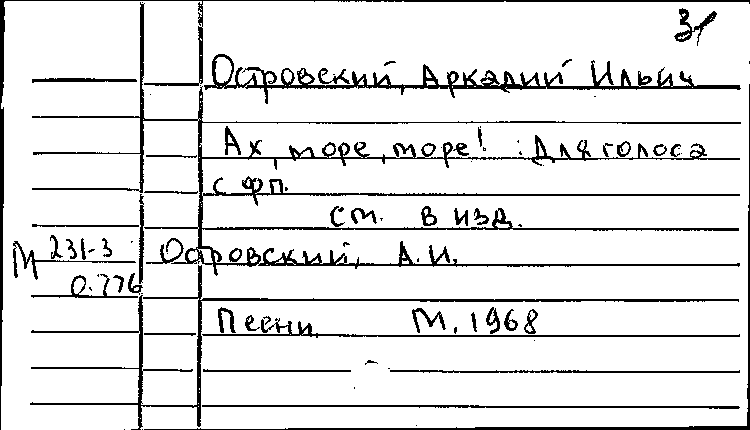 31
Островский, Аркадий Ильич
Ах, море, море! : Для голоса
с фп.
см. в изд.
М 231-3 Островский, А.И.
0.776
Песни. М. 1968